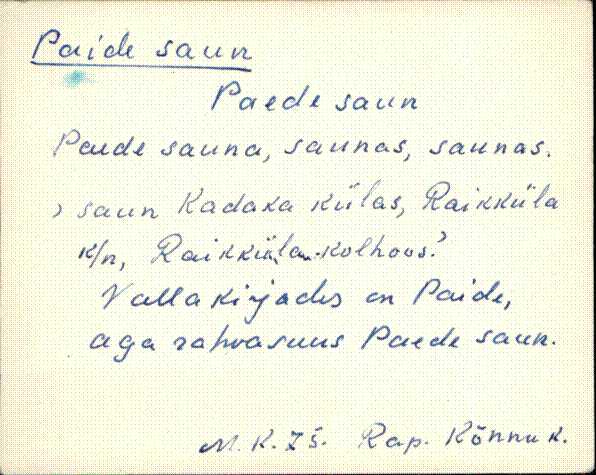 Paide saun
Paede saun
Paede sauna, saunas, saunas.
, saun Kadaka külas, Raikküla
k/n, Raikküla kolhoos.'
Vallakirjades on Paide,
aga rahvasuus Paede saun.
M. K. 7š. Rap. Kõnnu k.